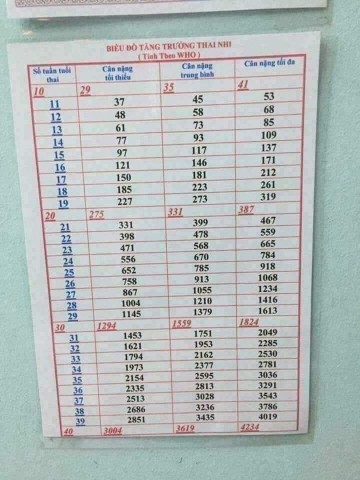 BIỂU ĐỒ TĂNG TRƯỞNG THAI NHI
( Tính Theo WHO )
Số tuần tuổi thai Cân nặng tối thiểu Cân nặng trung bình Cân nặng tối đa
10 29 35 41
11 37 45 53
12 48 58 68
13 61 73 85
14 77 93 109
15 97 117 137
16 121 146 171
17 150 181 212
18 185 223 261
19 227 273 319
20 275 331 387
21 331 399 467
22 398 478 559
23 471 568 665
24 556 670 784
25 652 785 918
26 758 913 1068
27 867 1055 1234
28 1004 1210 1416
29 1145 1379 1613
30 1294 1559 1824
31 1453 1751 2049
32 1621 1953 2285
33 1794 2162 2530
34 1973 2377 2781
35 2154 2595 3036
36 2335 2813 3291
37 2513 3028 3543
38 2686 3236 3786
39 2851 3435 4019
40 3004 3619 4234